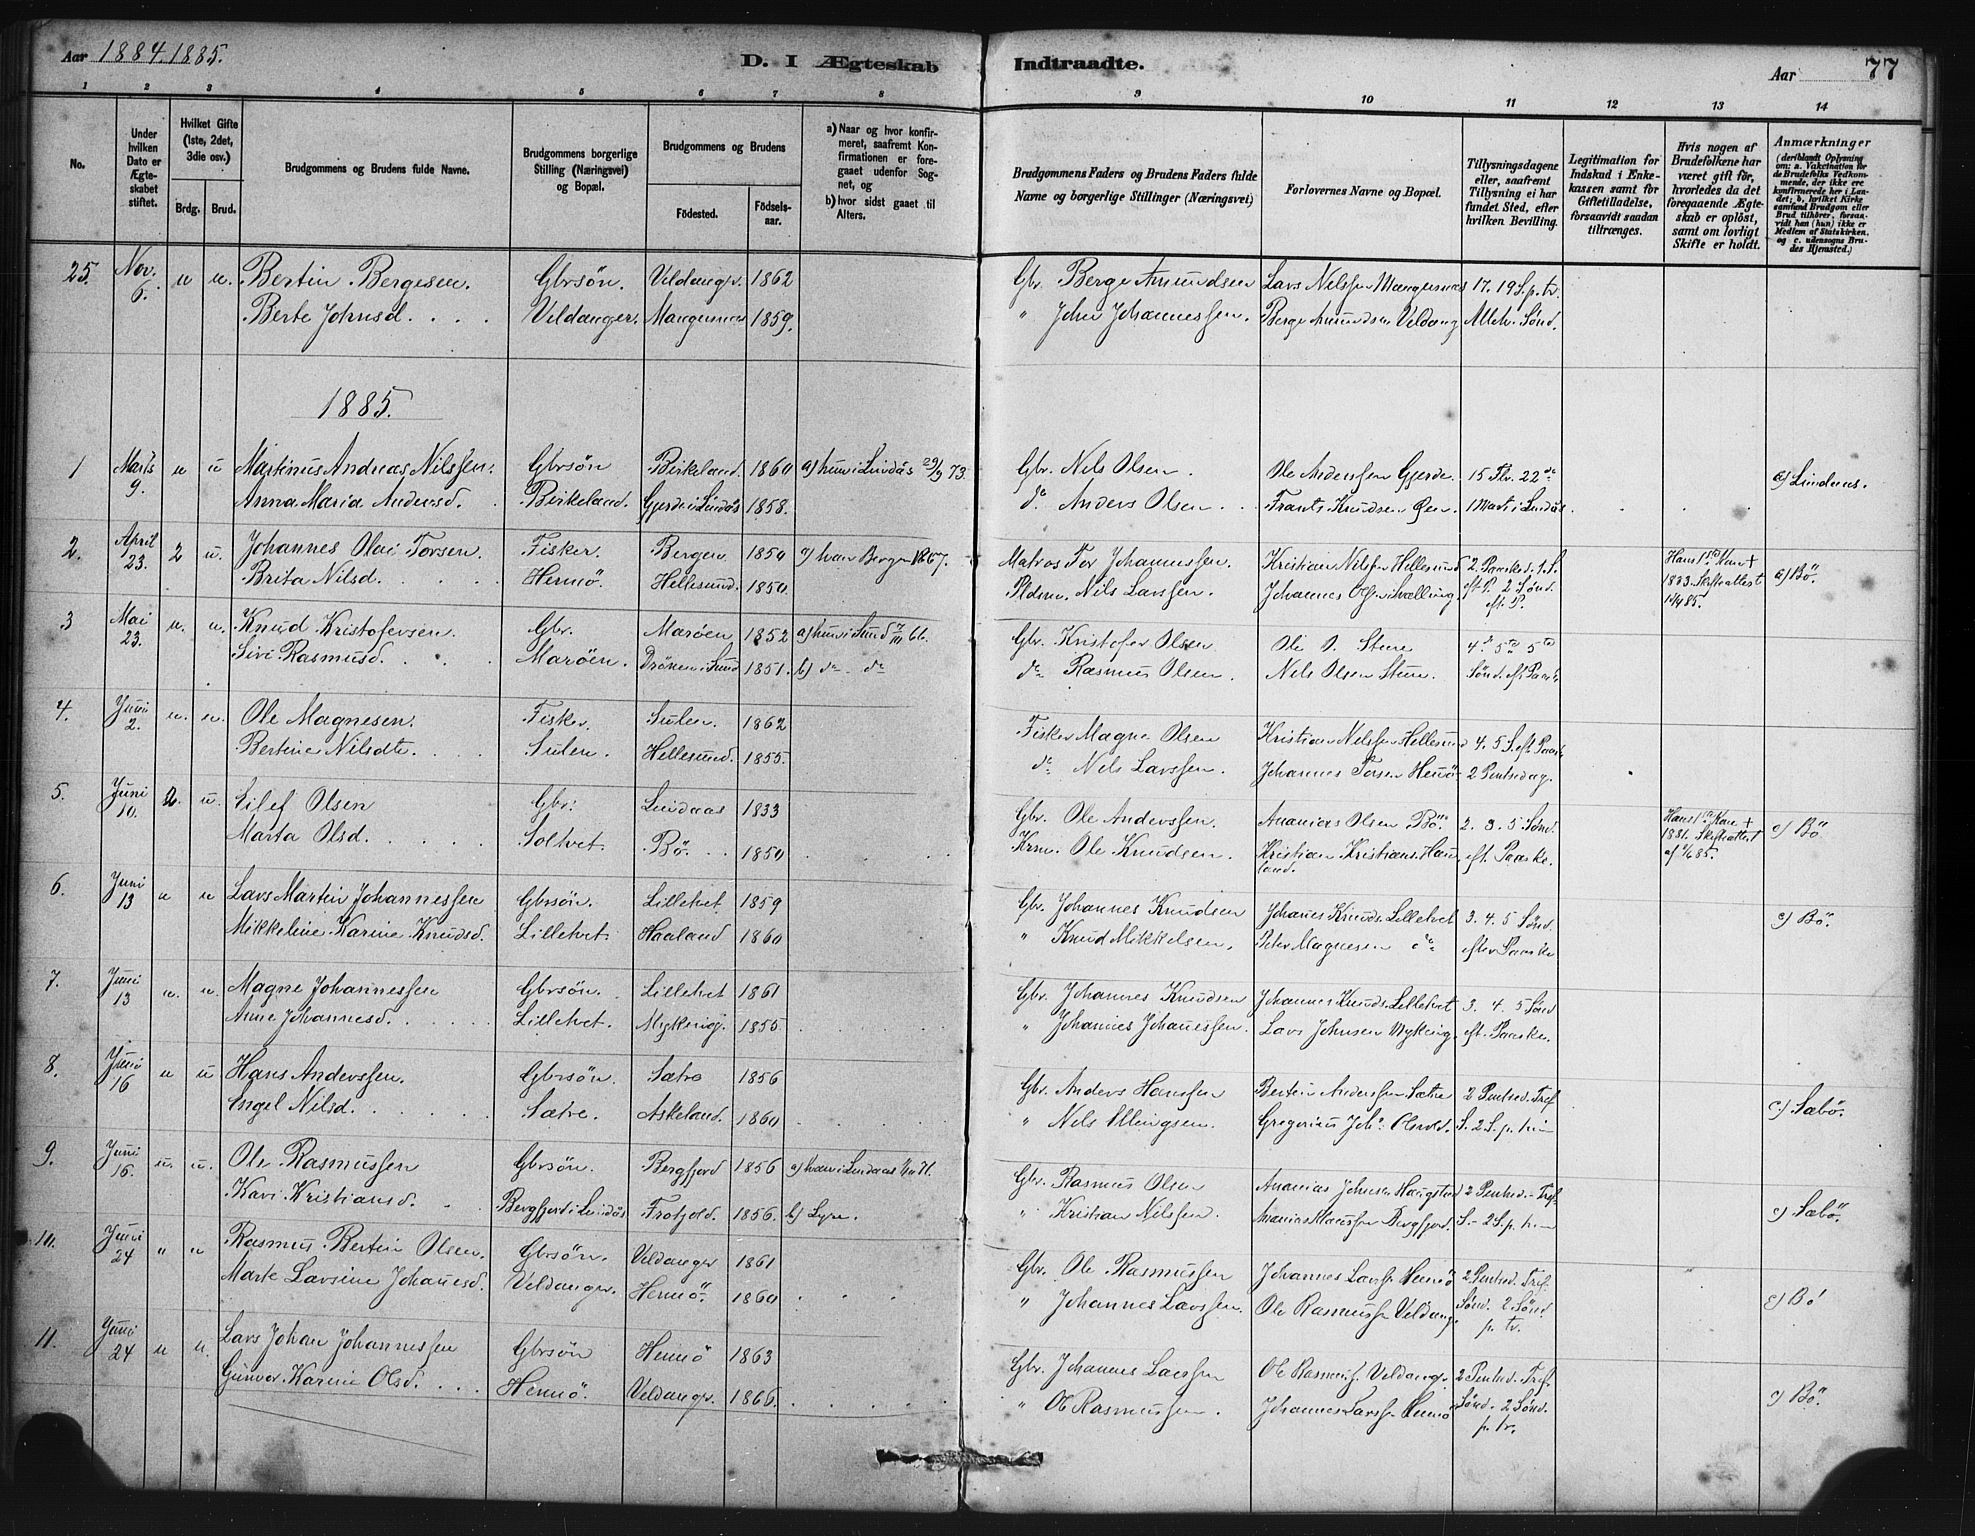 Aar 1884.1885.
D. I Ægteskab Indtraadte.
Aar 77
1 2 3 4 5 6 7 8 9 10 11 12 13 14
No.
Under hvilken Dato er Ægteskabet stiftet.
Hvilket Gifte (1ste, 2det, 3die osv.)
Brdg. Brud.
Brudgommens og Brudens fulde Navne.
Brudgommens borgerlige Stilling (Næringsvei) og Bopæl.
Brudgommens og Brudens
Fødested. Fødselsaar.
a) Naar og hvor konfirmeret, saafremt Konfirmationen er foregaaet udenfor Sognet, og
b) hvor sidst gaaet til Alters.
Brudgommens Faders og Brudens Faders fulde Navne og borgerlige Stillinger (Næringsvei)
Forlovernes Navne og Bopæl.
Tillysningsdagene eller, saafremt Tillysning ei har fundet Sted, efter hvilken Bevilling.
Legitimation for Indskud i Enkekassen samt for Giftetilladelse, forsaavidt saadan tiltrænges.
Hvis nogen af Brudefolkene har været gift før, hvorledes da det foregaaende Ægteskab er opløst, samt om lovligt Skifte er holdt.
Anmærkninger
25. Nov. 6. u u. Bertin Bergesen. Gbrsön. Veldanger 1862 Gbr. Berge Amundsen Lars Nilssen Mangersnæs 17. 19 S. p. tr.
Berte Johnsd. Veldanger. Mangersnæs 1859. " John Johannessen. Berge Amundsen Veldang Alleh. Sönd.
1885.
1 Marts 9. u u Martinus Andreas Nilssen. Gbrsön Birkeland. 1860 a) hun i Lindås 29/9 73. Gbr. Nils Olsen. Ole Anderssen Gjerde. 15 Fbr. 22de c) Lindaas.
Anna Maria Andersd. Birkeland. Gjerde i Lindås 1858. do. Anders Olsen. Frants Knudsen Öen. 1 Marts i Lindås.
2. April 23. 2 u. Johannes Olai Torsen. Fisker. Bergen 1850 a) han Bergen 1867. Matros Tor Johannessen. Kristian Nilssen Hellesund 2. Paaskd. 1. S. Hans 1ste Kone +
Brita Nilsd. Hennö. Hellesund. 1850. Nils Larssen. eft. P. 2 Sönd. eft. P. 1883. Skifteattest c) Bö.
3 Mai 23. u. u. Knud Kristofersen. Gbr. Maröen 1852 a) hun i Sund 66. Gbr. Kristofer Olsen Ole O. Sture 4de 5te
Sivi Rasmusd. Maröen. Drönen i Sund 1851. b) do. do do. Rasmus Olsen. Nils Olsen Sture. Sönd. eft. Paaske
4. Juni 2. u. u. Ole Magnesen. Fisker. Sulen. 1862 Fisker Magne Olsen Kristian Nilssen Hellesund 4. 5 S. eft. Paaske
Bertine Nilsdtr. Sulen. Hellesund. 1855. do. Nils Larssen. Johannes Torsen Hennö 2 Pintsedag.
5. Juni 10. 2. u. Eilef Olsen Gbr. Lindaas 1833 Gbr. Ole Anderssen. Ananias Olsen Bö. 2. 3. 5 Sönd. Hans 1ste Kone + c) Bö
Marta Olsd. Soltvet. Bö. 1850 Krm. Ole Knudsen. Kristian Kristians. Hauland. eft. Paaske. 1881. Skifteattest
6. Juni 13 u u Lars Martin Johannessen Gbrsön. Lilletvet 1859 Gbr. Johannes Knudsen Johannes Knuds. Lilletvet 3. 4. 5 Sönd. c) Bö.
Mikkeline Karine Knudsd. Lilletvet. Haaland 1860 " Knud Mikkelsen. Peter Magnesen do. efter Paaske
7. Juni 13 u. u. Magne Johannessen Gbrsön. Lilletvet 1861 Gbr. Johannes Knudsen Johannes Knuds. Lilletvet 3. 4. 5 Sönd
Anne Johannesd. Lilletvet. Myking. 1855. " Johannes Johanessen. Lars Johnsen Myking. eft. Paaske.
8. Juni 16 u u Hans Anderssen. Gbrsön. Sætre 1856 Gbr. Anders Hanssen Bertin Anderssen Sætre 2 Pintsed. Tref.
Engel Nilsd. Sætre. Askeland. 1860 " Nils Ellingsen. Gregorius Johs. S. 2 S. p. c) Sæbö.
9. Juni 16. u. u. Ole Rasmussen Gbrsön. Bergfjord 1856 a) han i Lindaas Gbr. Rasmus Olsen Ananias Johnsen Haugstad 2 Pintsed. Tref.
Kari Kristiansd. Bergfjord i Lindås 1856. b) " Kristian Nilssen. Ananias Bergfjord. S. 2 S. p. c) Sæbö.
10. Juni 24 " u Rasmus Bertin Olsen. Gbrsön. Veldanger 1861 Gbr. Ole Rasmussen Johannes Larss. Hennö 2 Pintsed. Tref.
Marte Larsine Johanesd. Veldanger. Hennö. 1860 " Johannes Larssen. Ole Rasmuss. Veldang. Sönd. 2 Sönd. p. tr. c) Bö
11. Juni 24 u u. Lars Johan Johannessen Gbrsön Hennö 1863 Gbr. Johannes Larssen Ole Rasmuss. Veldang. 2 Pintsed. Tref.
Gunvor Karine Olsd. Hennö. Veldanger 1866. " Ole Rasmussen. Johannes Larss. Hennö Sönd. 2 Sönd. p. tr. c) Bö